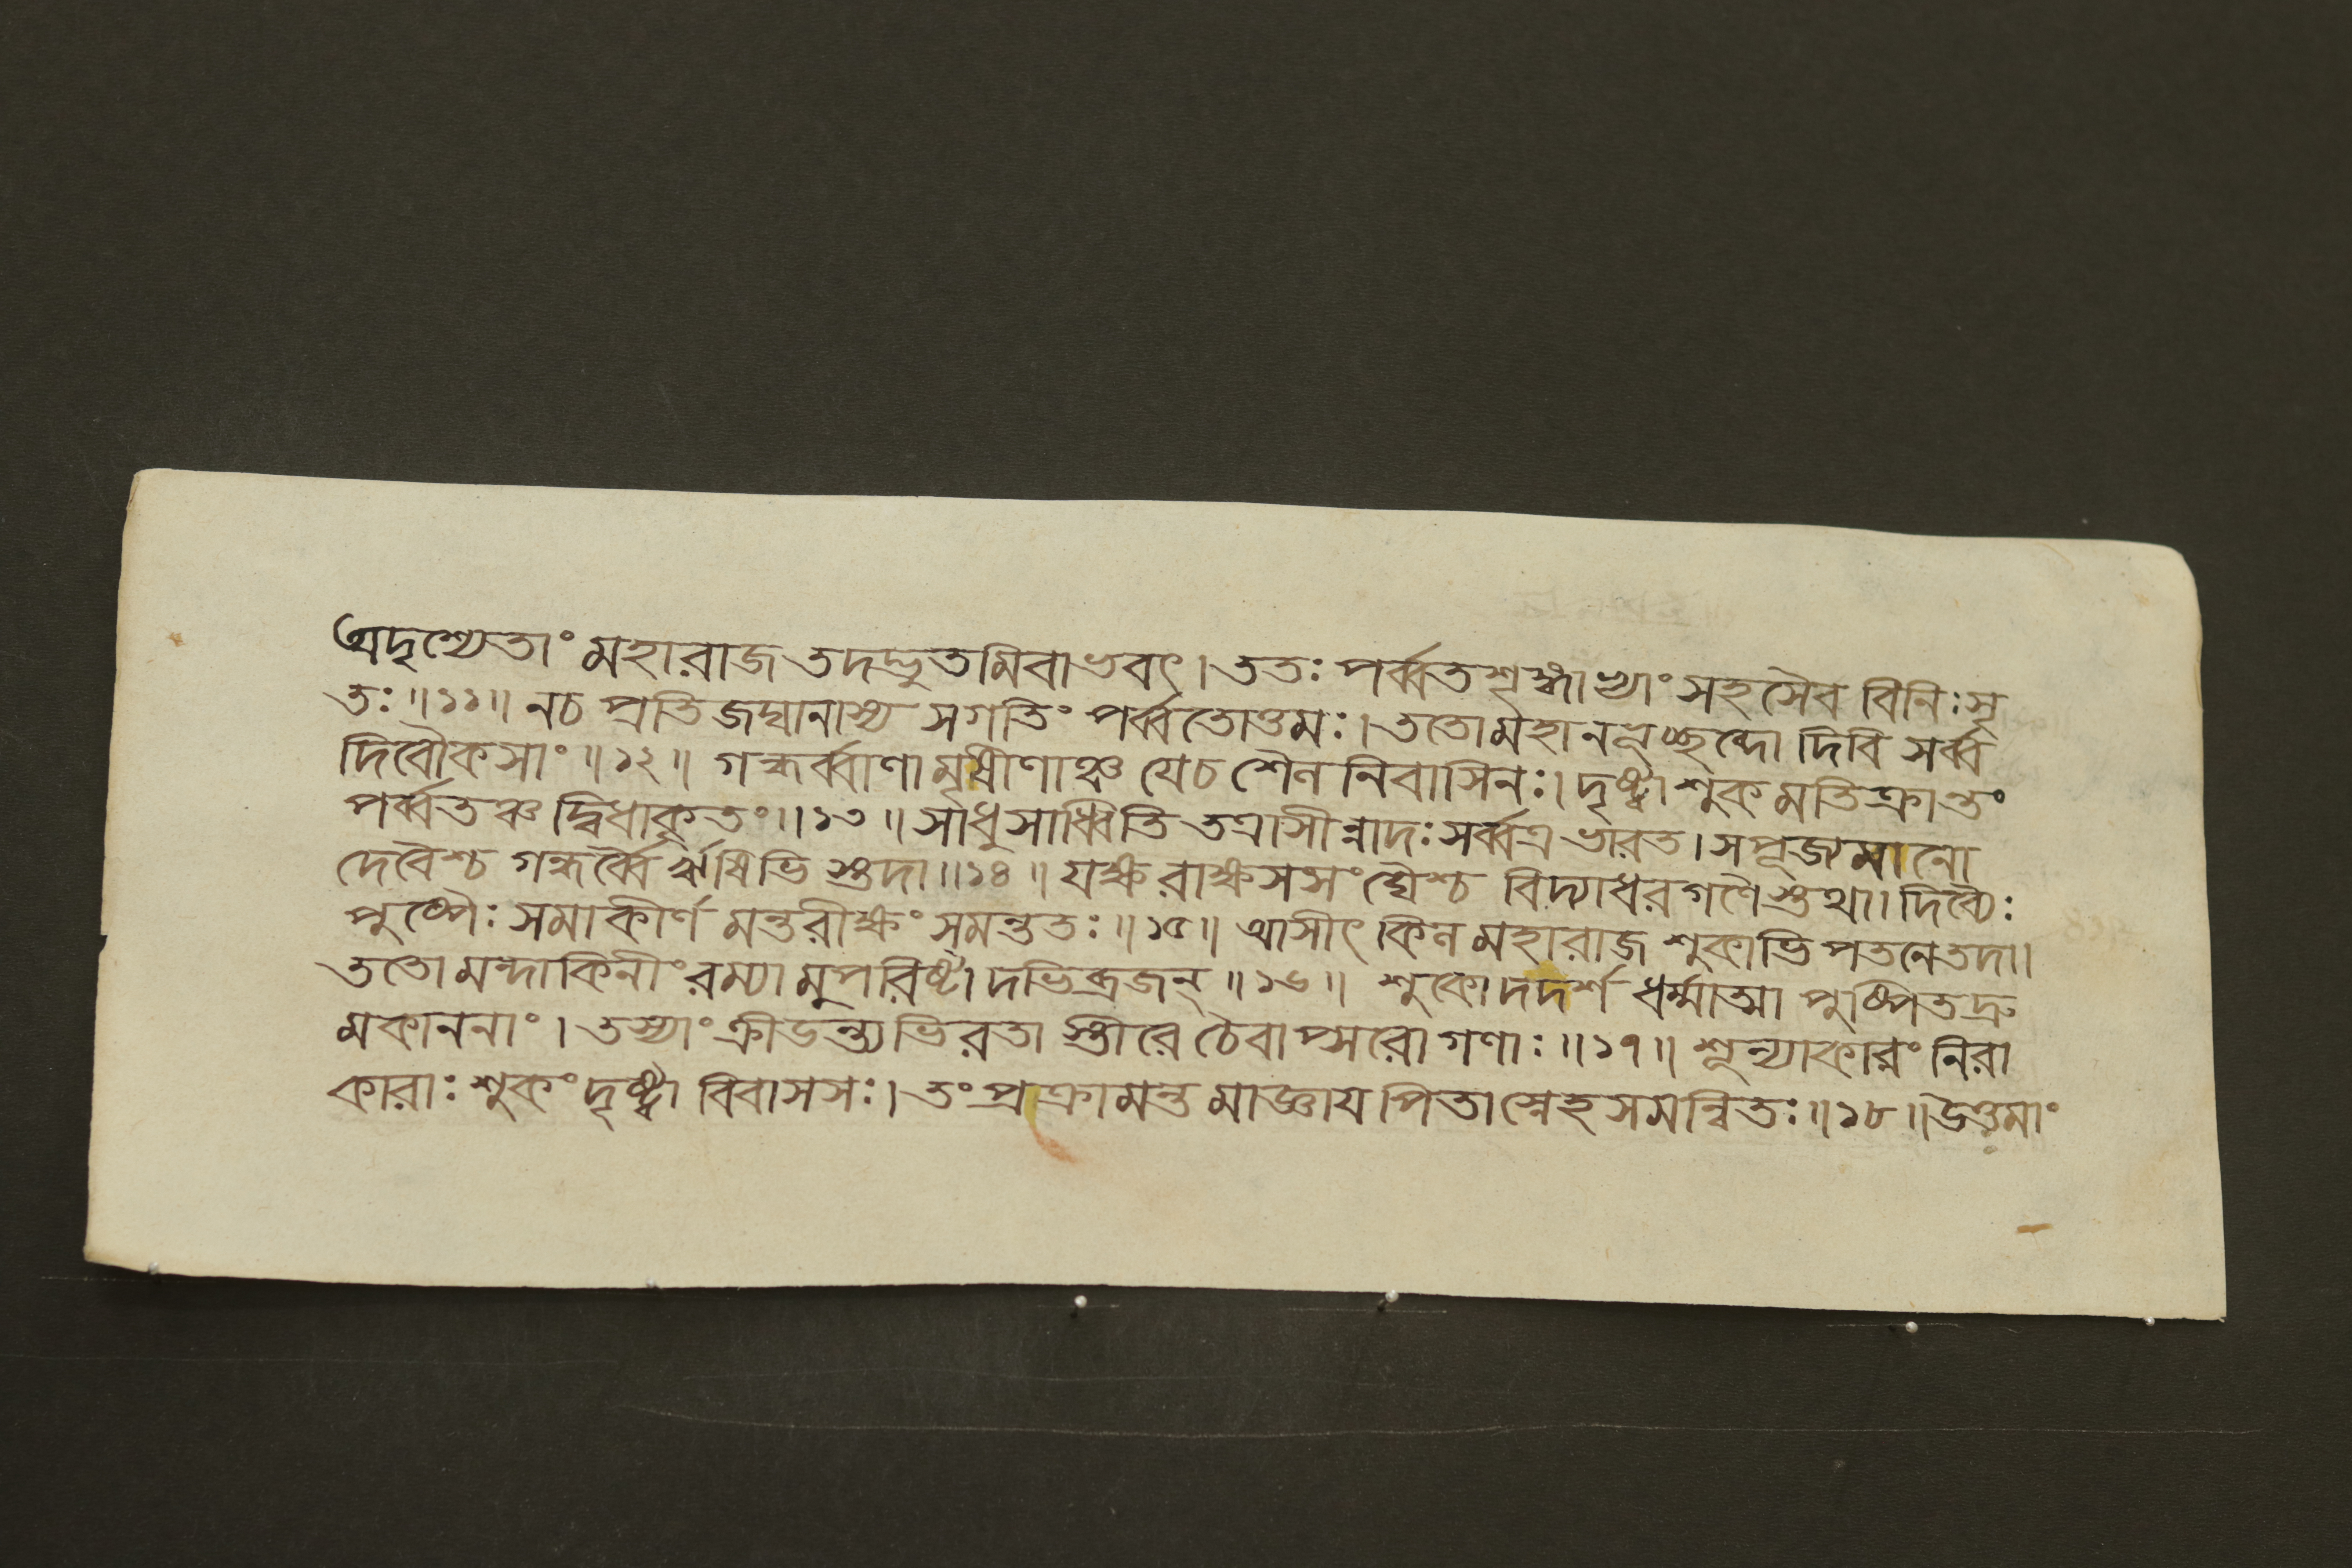 অদৃশ্যেতাং মহারাজ তদদ্ভুতমিবাভবৎ। ততঃ পর্ব্বতশৃঙ্গাভ্যাং সহসৈব বিনিঃসৃ
তঃ॥১১॥ নচ প্রতিজঘানাস্য সগতিং পর্ব্বতোত্তমঃ। ততোমহানভূচ্ছব্দো দিবি সর্ব্ব
দিবৌকসাং॥১২॥ গন্ধর্ব্বাণামৃষীণাঞ্চ যেচ শৈলনিবাসিনঃ। দৃষ্ট্বা শুকমতিক্রান্তং
পর্ব্বতঞ্চ দ্বিধাকৃতং॥১৩॥ সাধুসাধ্বিতি তত্রাসীন্নাদঃ সর্ব্বত্র ভারত। সপূজ্যমানো
দেবৈশ্চ গন্ধর্ব্বৈ র্ঋষিভি স্তদা॥১৪॥ যক্ষরাক্ষসসংঘৈশ্চ বিদ্যাধরগণৈ স্তথা। দিব্যৈঃ
পুষ্পৈঃ সমাকীর্ণমন্তরীক্ষং সমন্ততঃ॥১৫॥ আসীৎ কিল মহারাজ শুকাভিপতনেতদা।
ততো মন্দাকিনীং রম্যামুপরিষ্টাদভিব্রজন্॥১৬॥ শুকোদদর্শ ধর্ম্মাত্মা পুষ্পিতদ্রু
মকাননাং। তস্যাং ক্রীডন্ত্যভিরতা স্তীরে চৈবাপ্সরোগণাঃ॥১৭॥ শূন্যাকারং নিরা
কারাঃ শুকং দৃষ্ট্বা বিবাসসঃ। তংপ্রক্রামন্তমাজ্ঞায পিতাস্নেহসমন্বিতঃ॥১৮॥ উত্তমাং